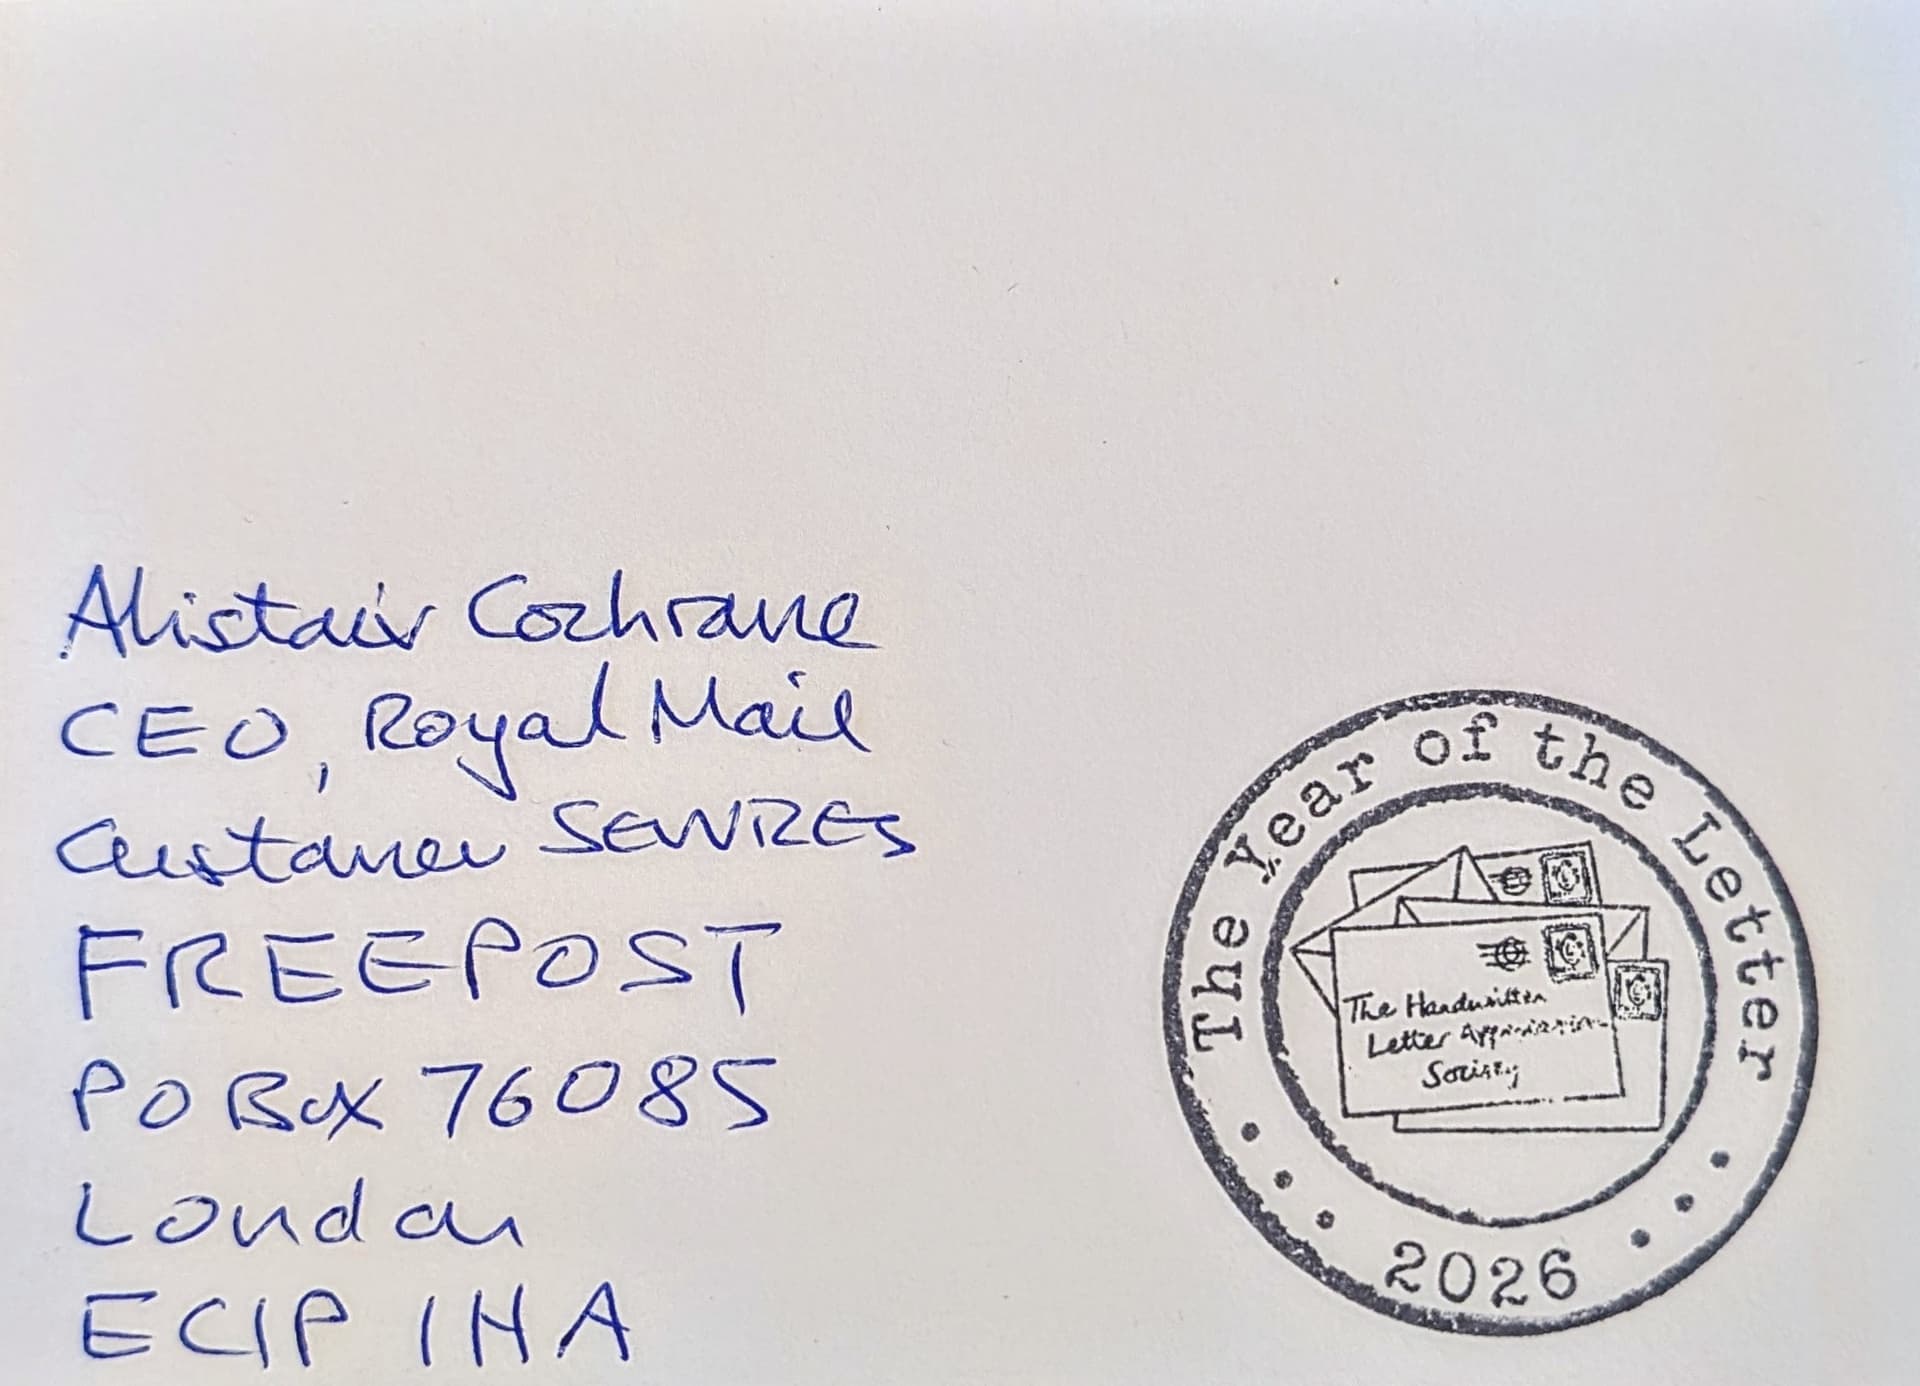 Alistair Cochrane
CEO, Royal Mail
Customer SERVICES
FREEPOST
PO Box 76085
London
EC1P 1HA
The Year of the Letter
The Handwritten
Letter Appreciation
Society
2026